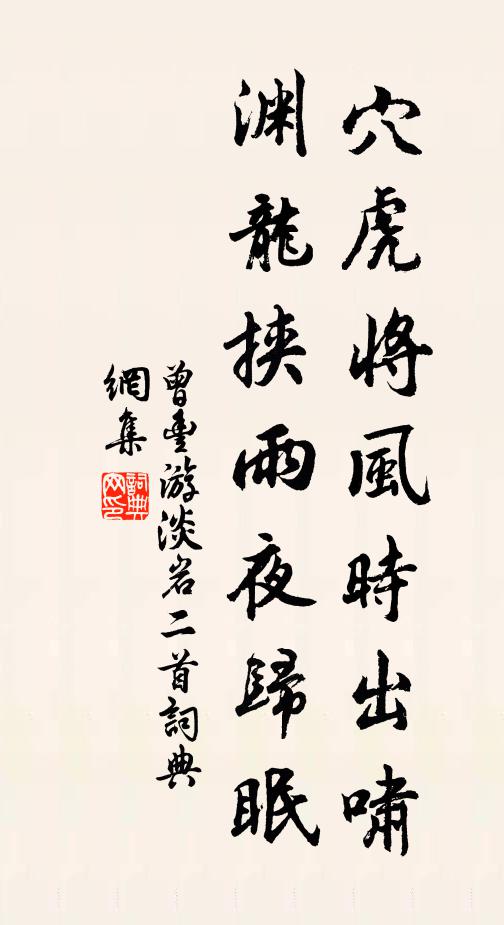 穴虎將風時出嘯
渊龍挾雨夜歸眠
曾豊游淡岩二首詞典
網集
詞典
网印